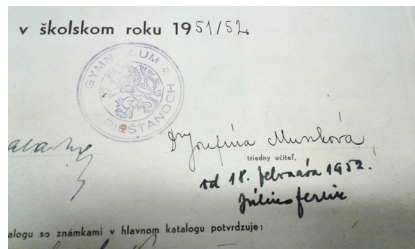 v školskom roku 1951/52.
GYMNÁZIUM
PIEŠŤANOCH
Jozefína Munková
triedny učiteľ,
od 18. februára 1952.
Július
alogu so známkami v hlavnom katalogu potvrdzuje: